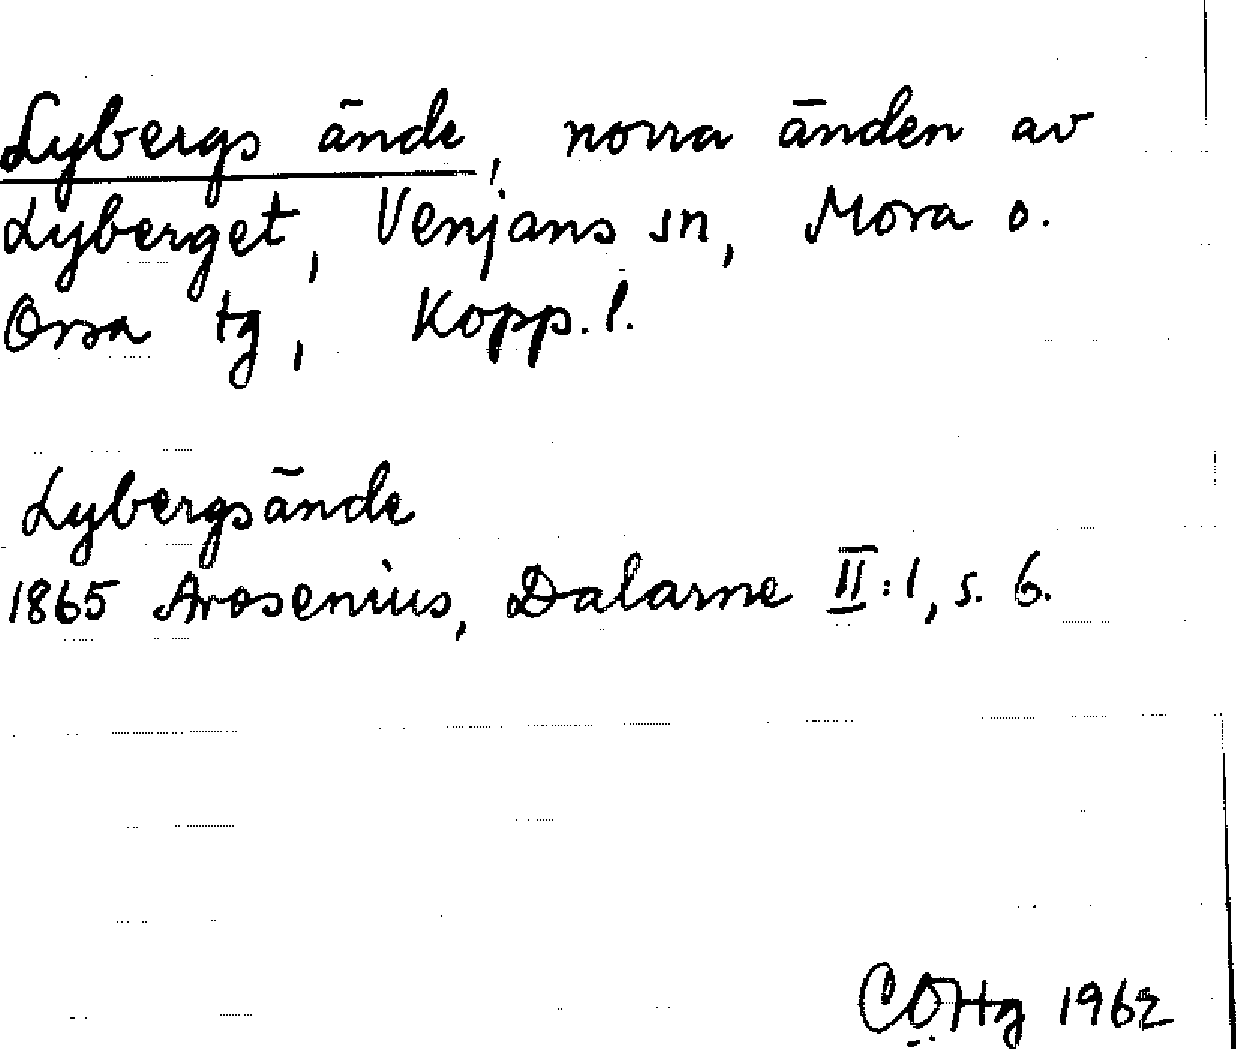 Lybergs ände, norra änden av
Lyberget, Venjans sn, Mora o.
Orsa tg, Kopp. l.
Lybergsände
1865 Arosenius, Dalarne II:1, s. 6.
1962